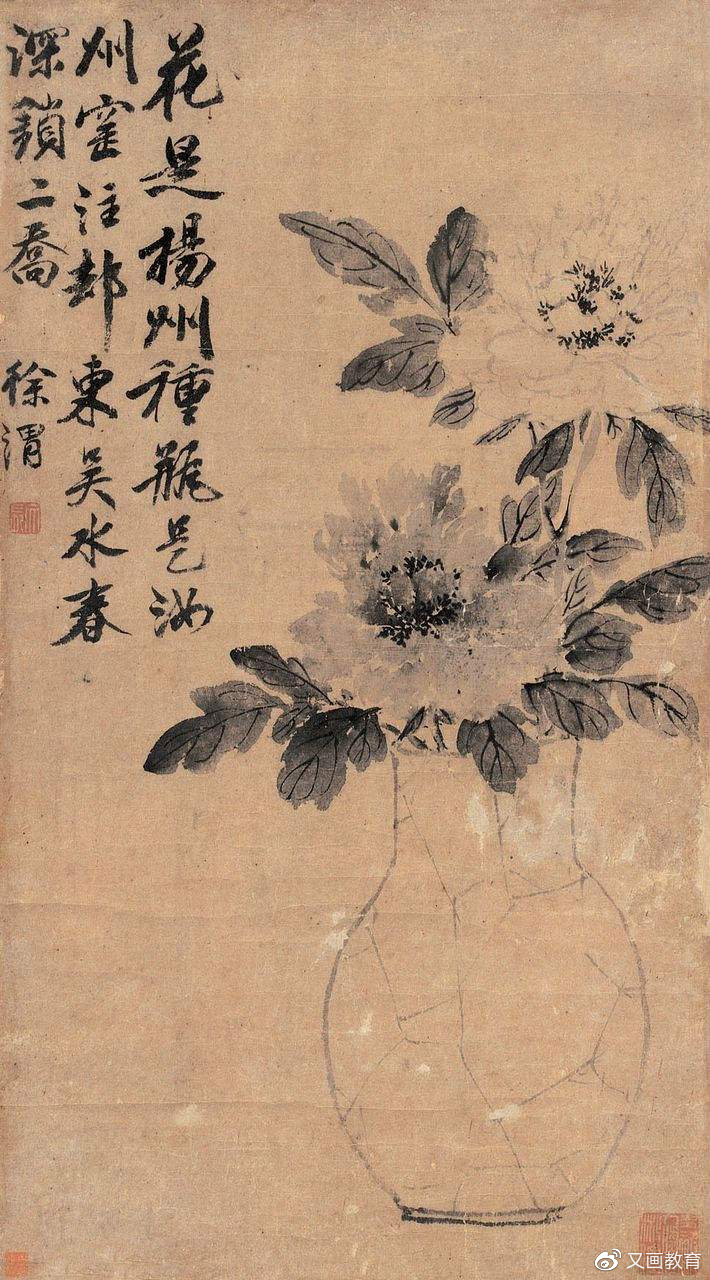 花是揚州種瓶是汝
州窑注却東吳水春
深鎖二喬
徐渭
又画教育